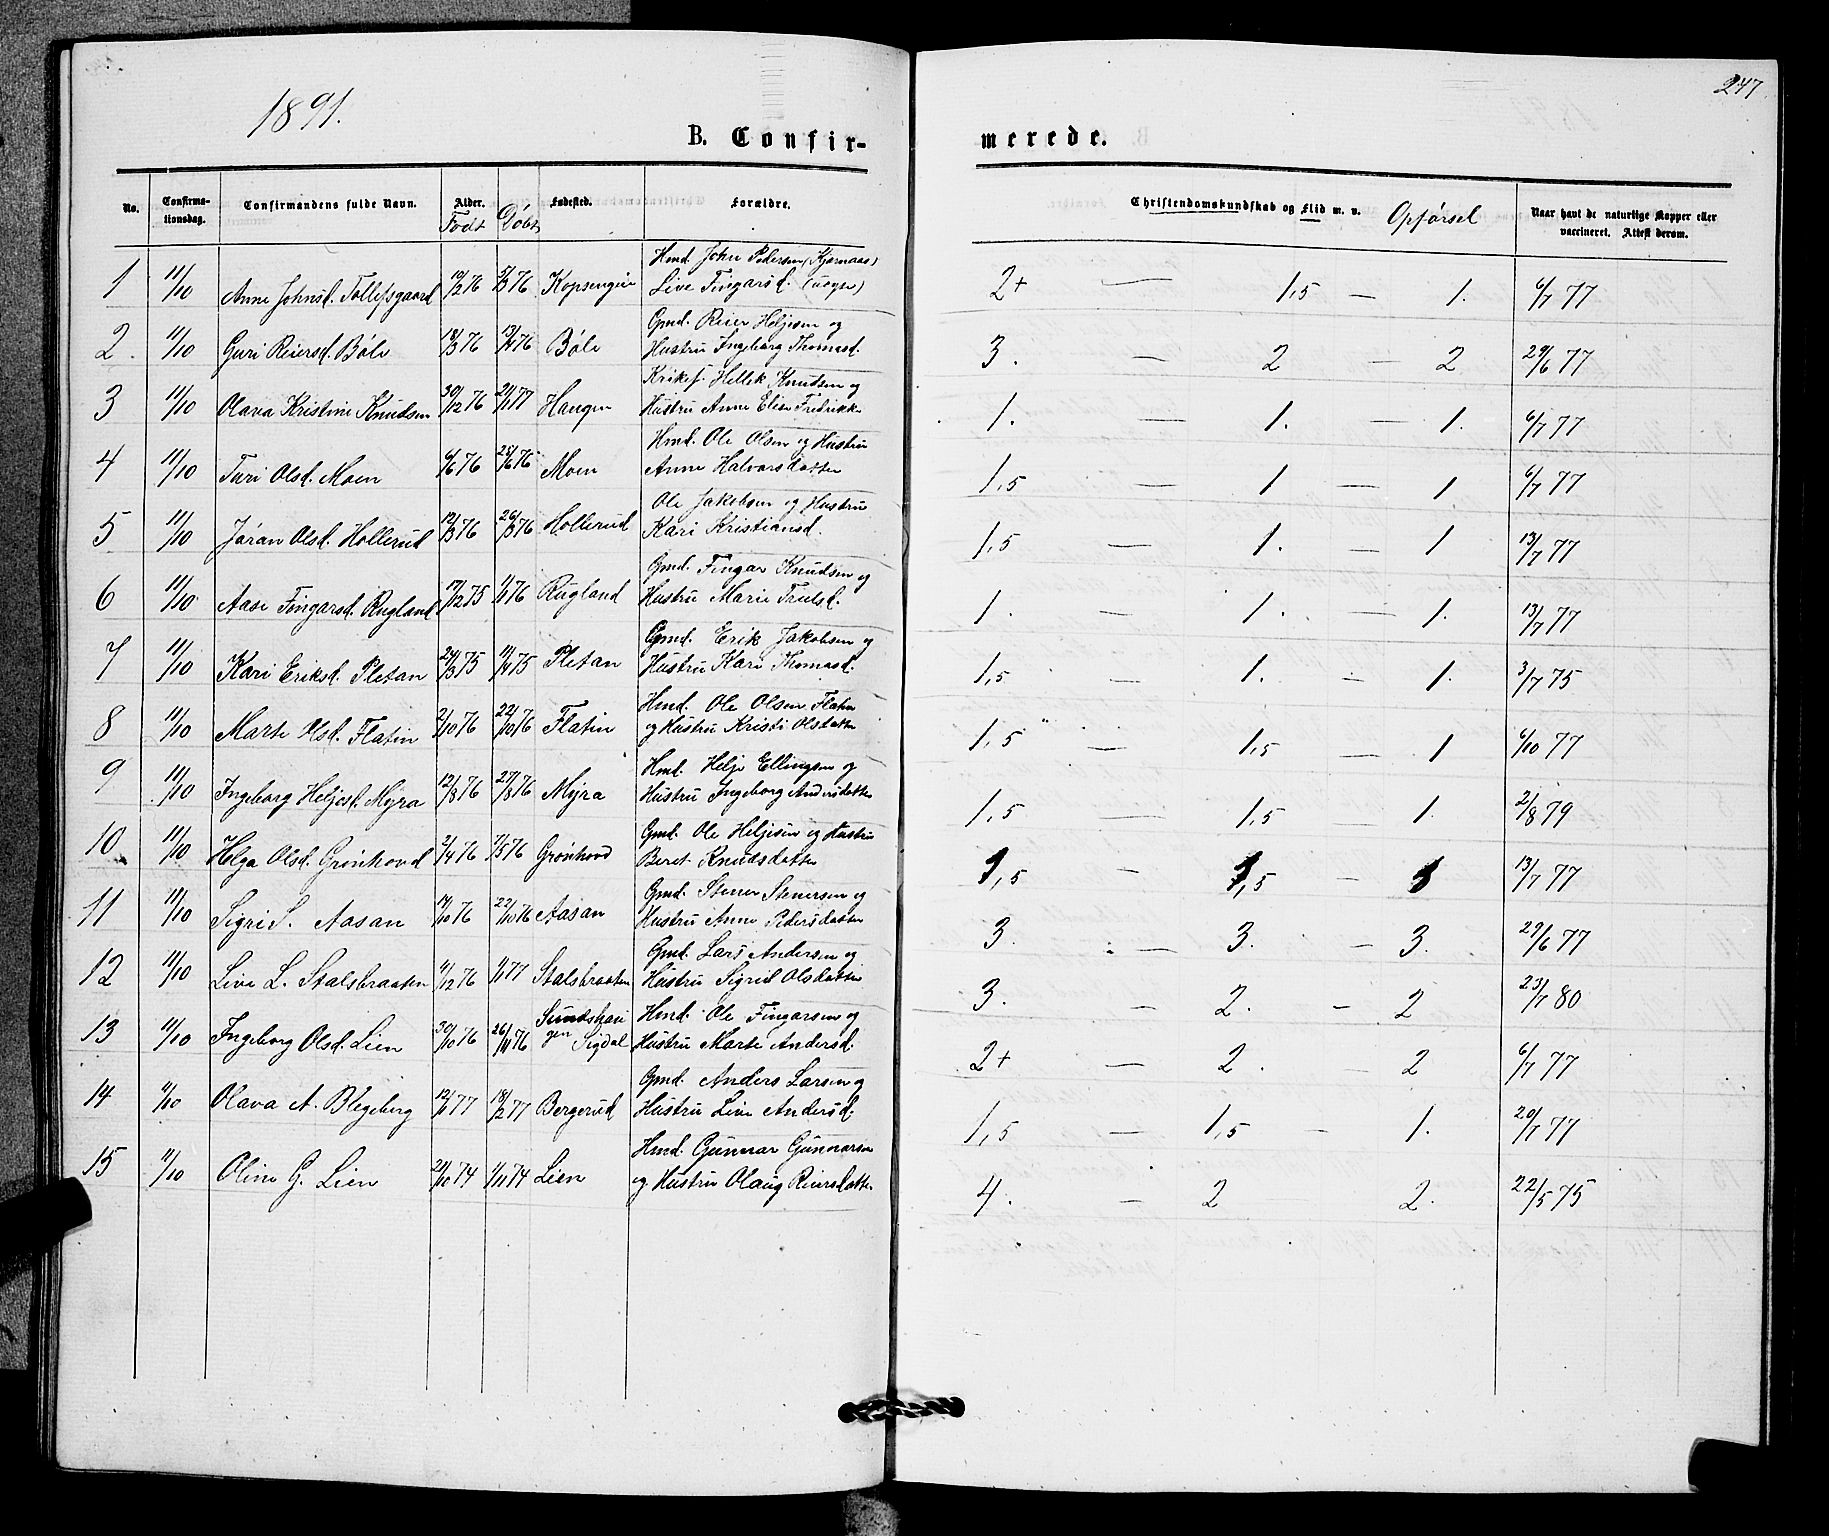 1891.
247
B. Confir-
merede.
No. Confirma-tionsdag. Confirmandens fulde Navn. Alder. Født Døbt Fødested. Forældre. Christendomskundskab og Flid m. v. Opførsel Naar havt de naturlige Kopper eller vaccineret. Attest derom.
1 11/10 Anne Johnsd. Tollefsgaard 10/2 76 5/3 76 Kopsengen Hmd. John Pedersen (Kjørnaas) Live Fingarsd. (uægte) 2+ — 1,5 — 1. 6/7 77
2. 11/10 Guri Reiersd. Bøle 18/3 76 13/4 76 Bøle Gmd. Reier Heljesen og Hustru Ingeborg Thomasd. 3. — 2 — 2 29/6 77
3 11/10 Olava Kristine Knudsen 30/12 76 21/1 77 Haugen Kirkes. Hellek Knudsen og Hustru Anne Elise Fredrikke 1. — 1. — 1. 6/7 77
4 11/10 Turi Olsd. Moen 6/6 76 25/6 76 Moen Hmd. Ole Olsen og Hustru Anne Halvorsdatter 1,5 — 1 — 1 6/7 77
5 11/10 Jøran Olsd. Hollerud 12/3 76 26/3 76 Hollerud Ole Jakobsen og Hustru Kari Kristiansd. 1,5 — 1. — 1 13/7 77
6 11/10 Aase Fingarsd. Rugland 17/12 75 1/1 76 Rugland Gmd. Fingar Knudsen og Hustru Marie Trulsd. 1. — 1. — 1. 13/7 77
7 11/10 Kari Eriksd. Pletan 24/3 75 11/4 75 Pletan Gmd. Erik Jakobsen og Hustru Kari Thomasd. 1,5 — 1. — 1. 3/7 75
8 11/10 Marte Olsd. Flatin 2/10 76 22/10 76 Flatin Hmd. Ole Olsen Flatin og Hustru Kristi Olsdatter 1,5 — 1,5 — 1 6/10 77
9 11/10 Ingeborg Heljesd. Myra 12/8 76 27/8 76 Myra Hmd. Helje Ellingsen og Hustru Ingeborg Andersdatter 1,5 — 1,5 — 1. 2/8 79
10 11/10 Helga Olsd. Grønhovd 2/4 76 7/5 76 Grønhovd Gmd. Ole Heljesen og Hustru Beret Knudsdatter 1,5 — 1,5 — 13/7 77
11 11/10 Sigri S. Aasan 14/10 76 22/10 76 Aasan Gmd. Stener Stenersen og Hustru Anne Pedersdatter 3. — 3. — 3. 29/6 77
12 11/10 Live L. Stalsbraaten 4/12 76 1/1 77 Stalsbraaten Gmd. Lars Andersen og Hustru Sigrid Olsdatter 3. — 2. — 2 23/7 80
13 11/10 Ingeborg Olsd. Lien 30/10 76 26/11 76 Sundshaugen Sigdal Hmd. Ole Fingarsen og Hustru Marte Andersd. 2+ — 2. — 2 6/7 77
14 11/10 Olava A. Blegeberg 12/1 77 18/2 77 Bergerud Gmd. Anders Larsen og Hustru Live Andersd. 1,5 — 1,5 — 1. 20/7 77
15 11/10 Oline G. Lien 21/10 74 1/11 74 Lien Hmd. Gunnar Gunnarsen og Hustru Olaug Reiersdatter 4. — 2 2. 22/5 75